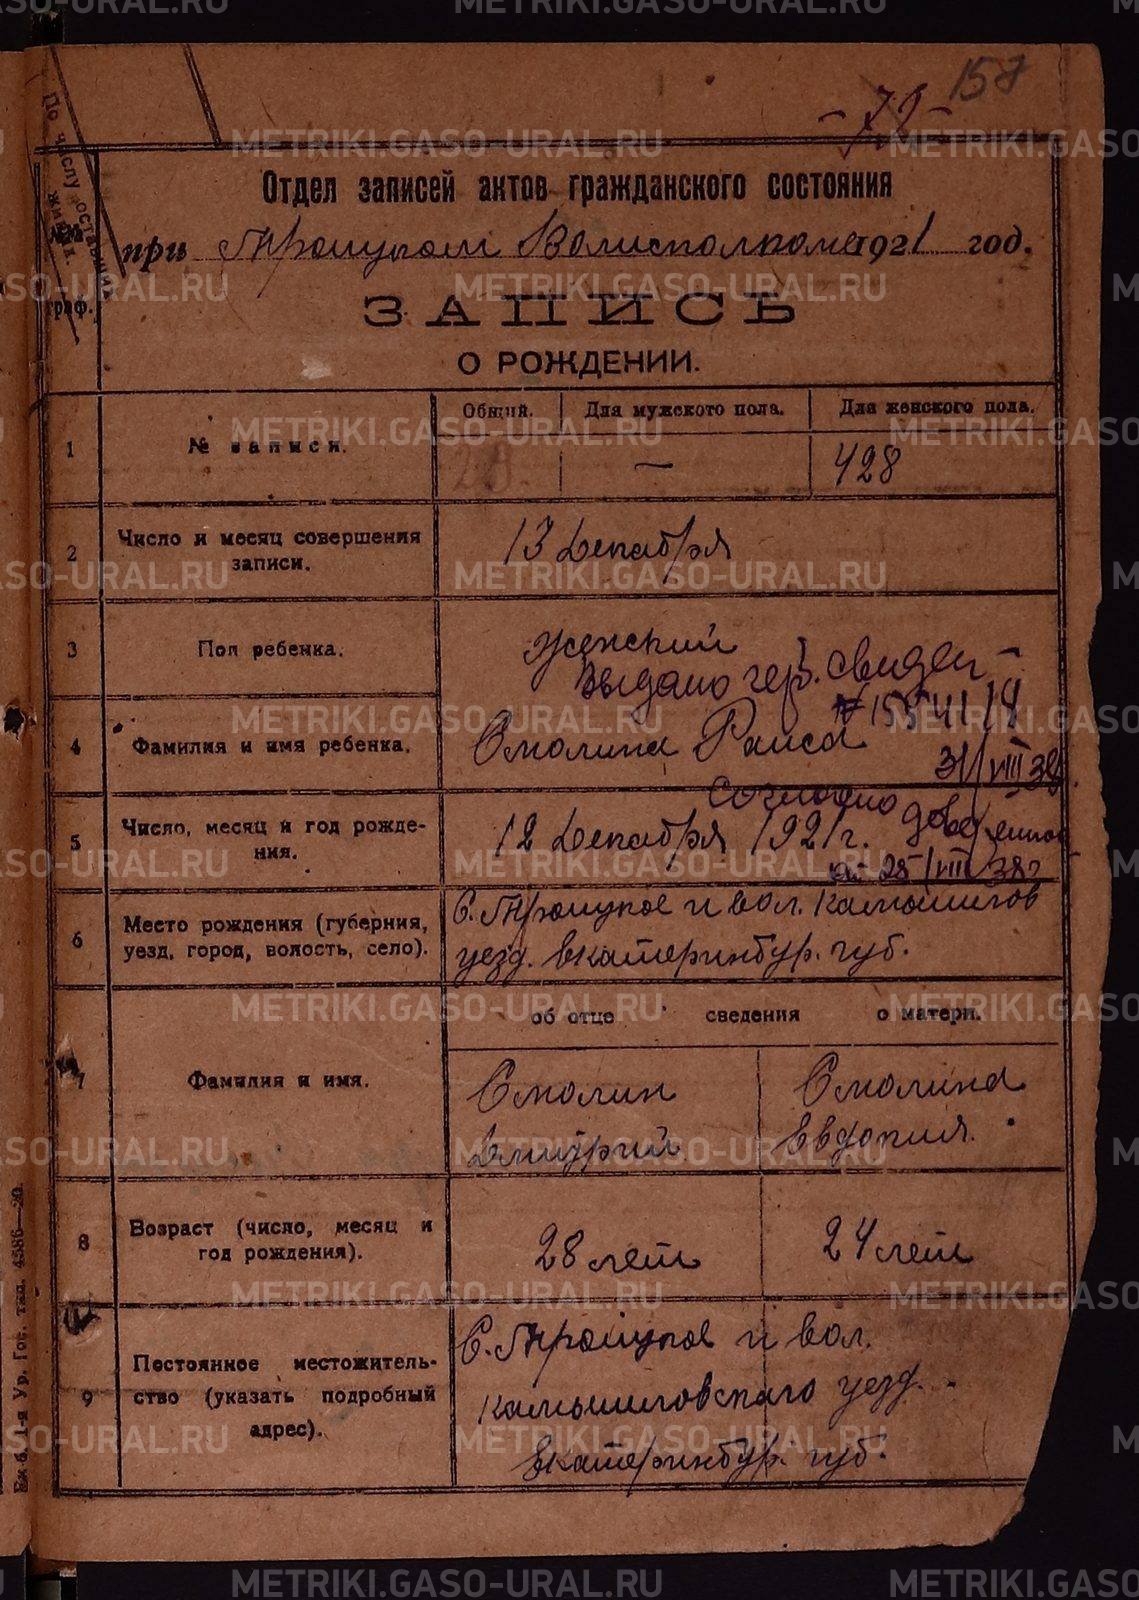 157
- 79 -
По числу оставших живых.
№№ граф.
Отдел записей актов гражданского состояния
при Троицком Волисполкоме 1921 год.
ЗАПИСЬ
О РОЖДЕНИИ.
1 № записи. Общий. Для мужского пола. Для женского пола.
— 428
2 Число и месяц совершения записи.
13 Декабря
3 Пол ребенка.
Женский
Выдано чер. свидет-
№ 155
31/VIII 38
4 Фамилия и имя ребенка.
Смолина Раиса
согласно
5 Число, месяц и год рождения.
12 Декабря 1921 г.
от 25/VIII 38 г
6 Место рождения (губерния, уезд, город, волость, село).
С. Троицкое и вол. Камышлов
уезд. Екатеринбур. губ.
об отце сведения о матери.
7 Фамилия и имя.
Смолин Смолина
Дмитрий Евдокия.
8 Возраст (число, месяц и год рождения).
28 лет 24 лет
9 Постоянное местожительство (указать подробный адрес).
С. Троицкое и вол.
Камышловского уезд.
Екатеринбур. губ.
Еж б. 1-я Ур. Гос. тип. 4586—20.
METRIKI.GASO-URAL.RU